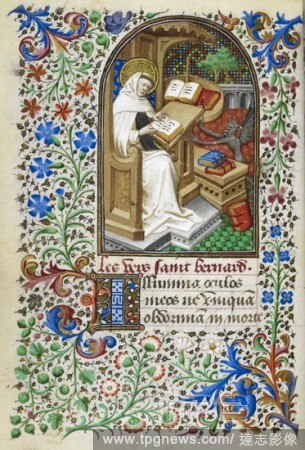 Les vers saint bernard.
Illumina oculos
meos ne vnqua
obdormia, in morte
www.tpgnews.com/ 達志影像